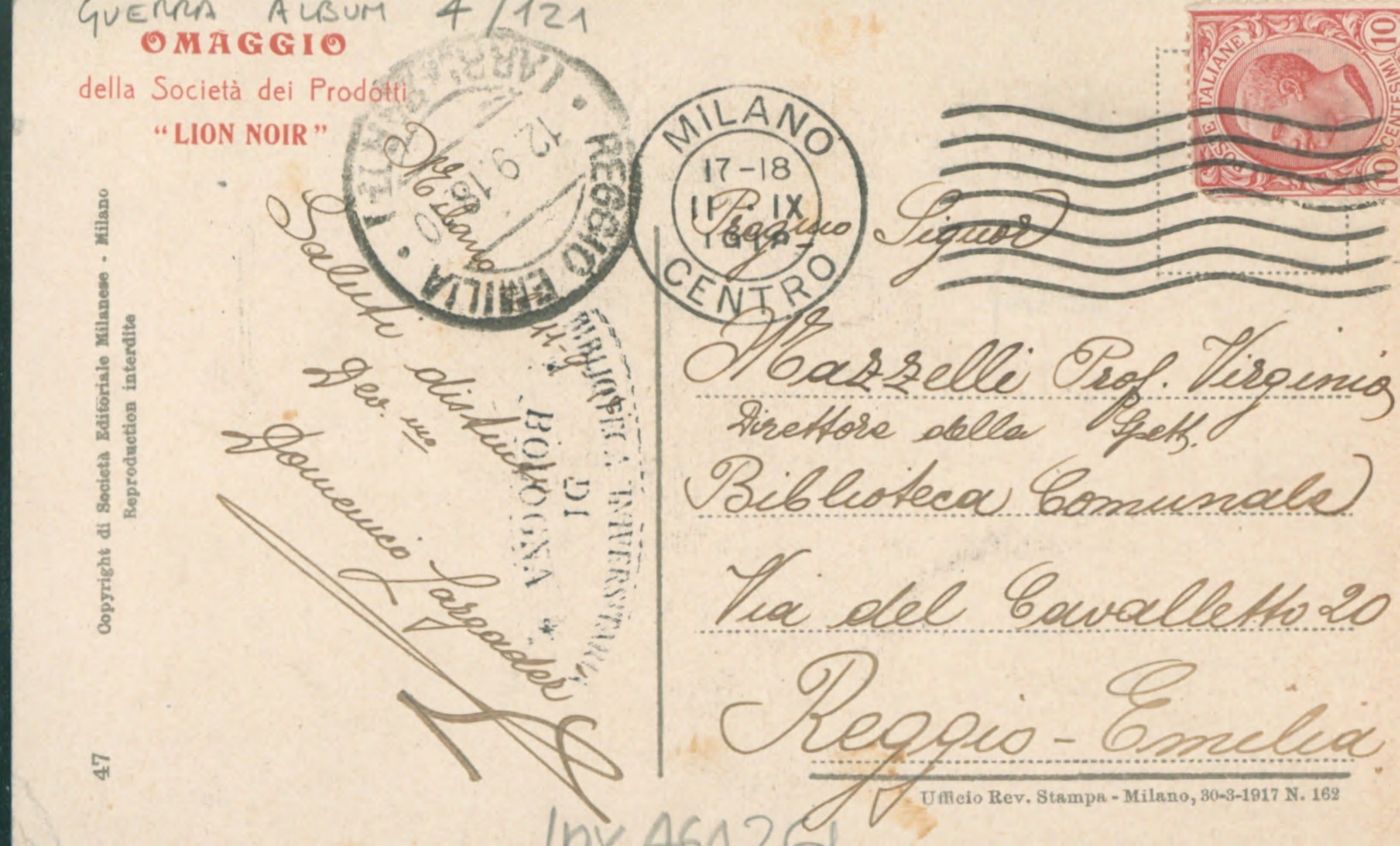 GUERRA ALBUM 4/121
OMAGGIO
della Società dei Prodotti
"LION NOIR"
REGGIO EMILIA
12.9.18
MILANO
17-18
11 · IX
CENTRO
POSTE ITALIANE
10
10
Milano
Saluti distinti
Dev.mo
Domenico Largaider
BIBLIOTECA UNIVERSITARIA
DI
BOLOGNA
Preg.mo Signor
Mazzelli Prof. Virginio
Direttore della Spett.
Biblioteca Comunale
Via del Cavalletto 20
Reggio-Emilia
Ufficio Rev. Stampa - Milano, 30-3-1917 N. 162
Copyright di Società Editoriale Milanese - Milano
Reproduction interdite
47